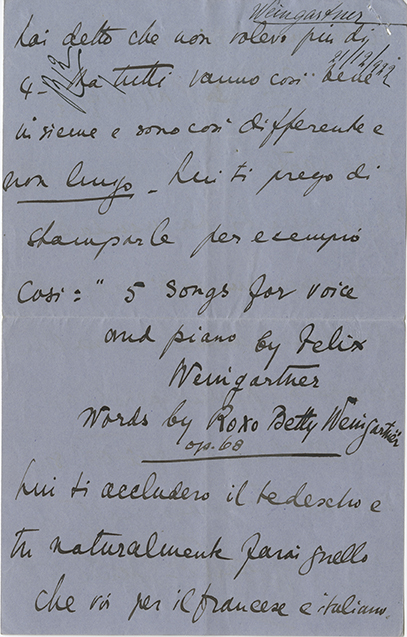 Weingartner
21/12/912
hai detto che non volevo piu di
4 - Ma tutti vanno così bene
insieme e sono così differente e
non lungo - Lui ti prego di
stamparle per esempio
così: " 5 songs for voice
and piano by Felix
Weingartner
words by Roxo Betty Weingartner
op. 68
Lui ti accludero il tedescho e
tu naturalmente farai quello
che voi per il francese e italiano.